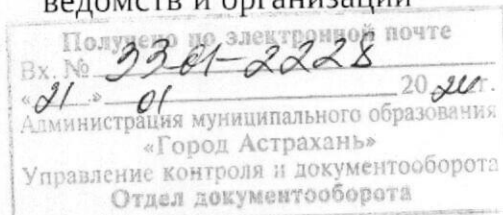 ведомств и организаций
Получено по электронной почте
Вх. № 33-01-2228
«21» 01 20 г.
Администрация муниципального образования
«Город Астрахань»
Управление контроля и документооборота
Отдел документооборота